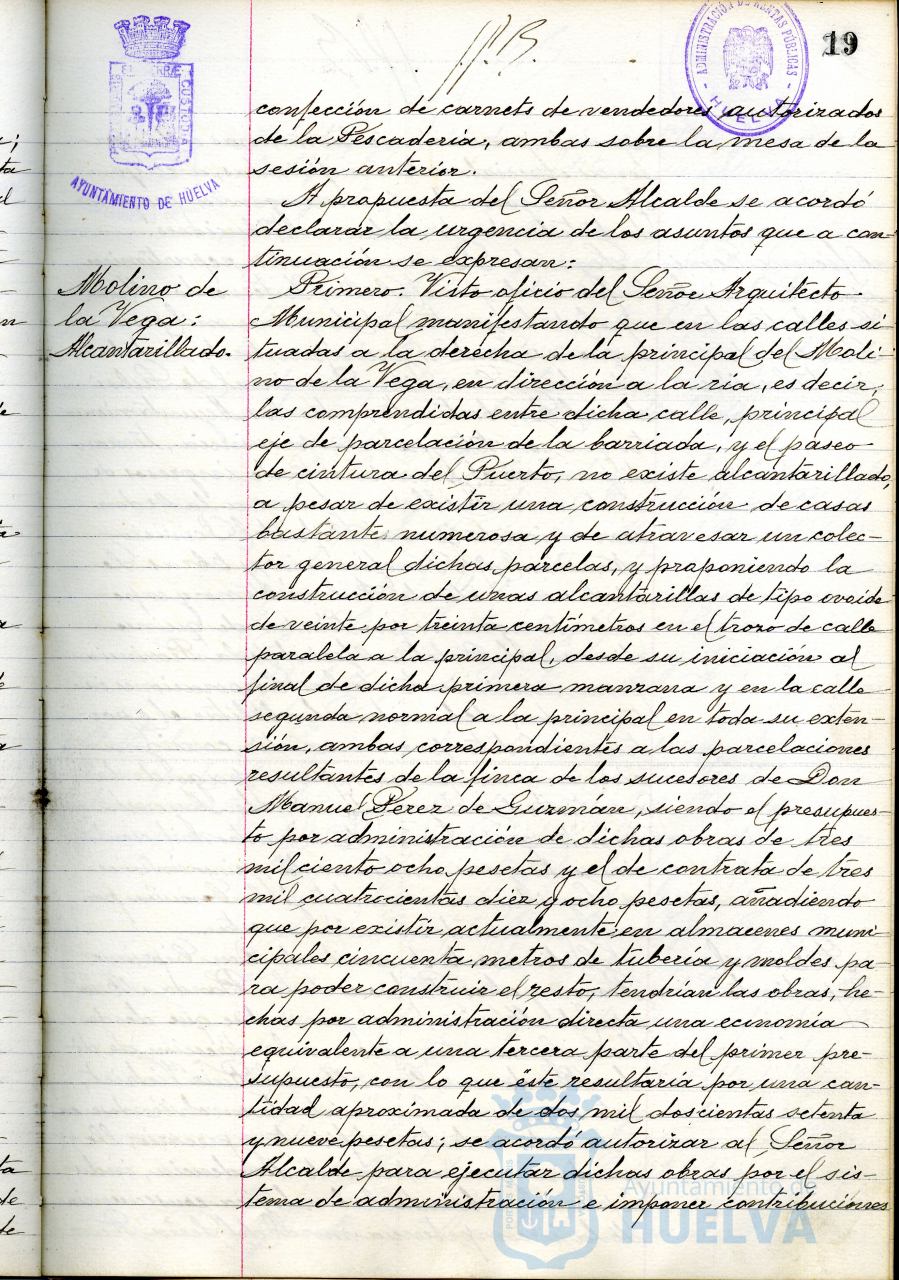 19
ADMINISTRACIÓN DE RENTAS PÚBLICAS
HUELVA
AYUNTAMIENTO DE HUELVA
confección de carnets de vendedores autorizados
de la Pescadería, ambas sobre la mesa de la
sesión anterior.
A propuesta del Señor Alcalde se acordó
declarar la urgencia de los asuntos que a con-
tinuación se expresan:
Molino de
la Vega:
Alcantarillado.
Primero. Visto oficio del Señor Arquitecto
Municipal manifestando que en las calles si-
tuadas a la derecha de la principal del Moli-
no de la Vega, en dirección a la ria, es decir,
las comprendidas entre dicha calle, principal
eje de parcelación de la barriada, y el paseo
de cintura del Puerto, no existe alcantarillado,
a pesar de existir una construcción de casas
bastante numerosa y de atravesar un colec-
tor general dichas parcelas, y proponiendo la
construcción de unas alcantarillas de tipo ovoide
de veinte por treinta centímetros en el trozo de calle
paralela a la principal, desde su iniciación al
final de dicha primera manzana y en la calle
segunda normal a la principal en toda su exten-
sión, ambas correspondientes a las parcelaciones
resultantes de la finca de los sucesores de Don
Manuel Pérez de Guzmán, siendo el presupues-
to por administración de dichas obras de tres
mil ciento ocho pesetas y el de contrata de tres
mil cuatrocientas diez y ocho pesetas, añadiendo
que por existir actualmente en almacenes muni-
cipales cincuenta metros de tubería y moldes pa-
ra poder construir el resto, tendrían las obras, he-
chas por administración directa una economía
equivalente a una tercera parte del primer pre-
supuesto, con lo que éste resultaría por una can-
tidad aproximada de dos mil doscientas setenta
y nueve pesetas; se acordó autorizar al Señor
Alcalde para ejecutar dichas obras por el sis-
tema de administración e imponer contribuciones
Ayuntamiento de
HUELVA